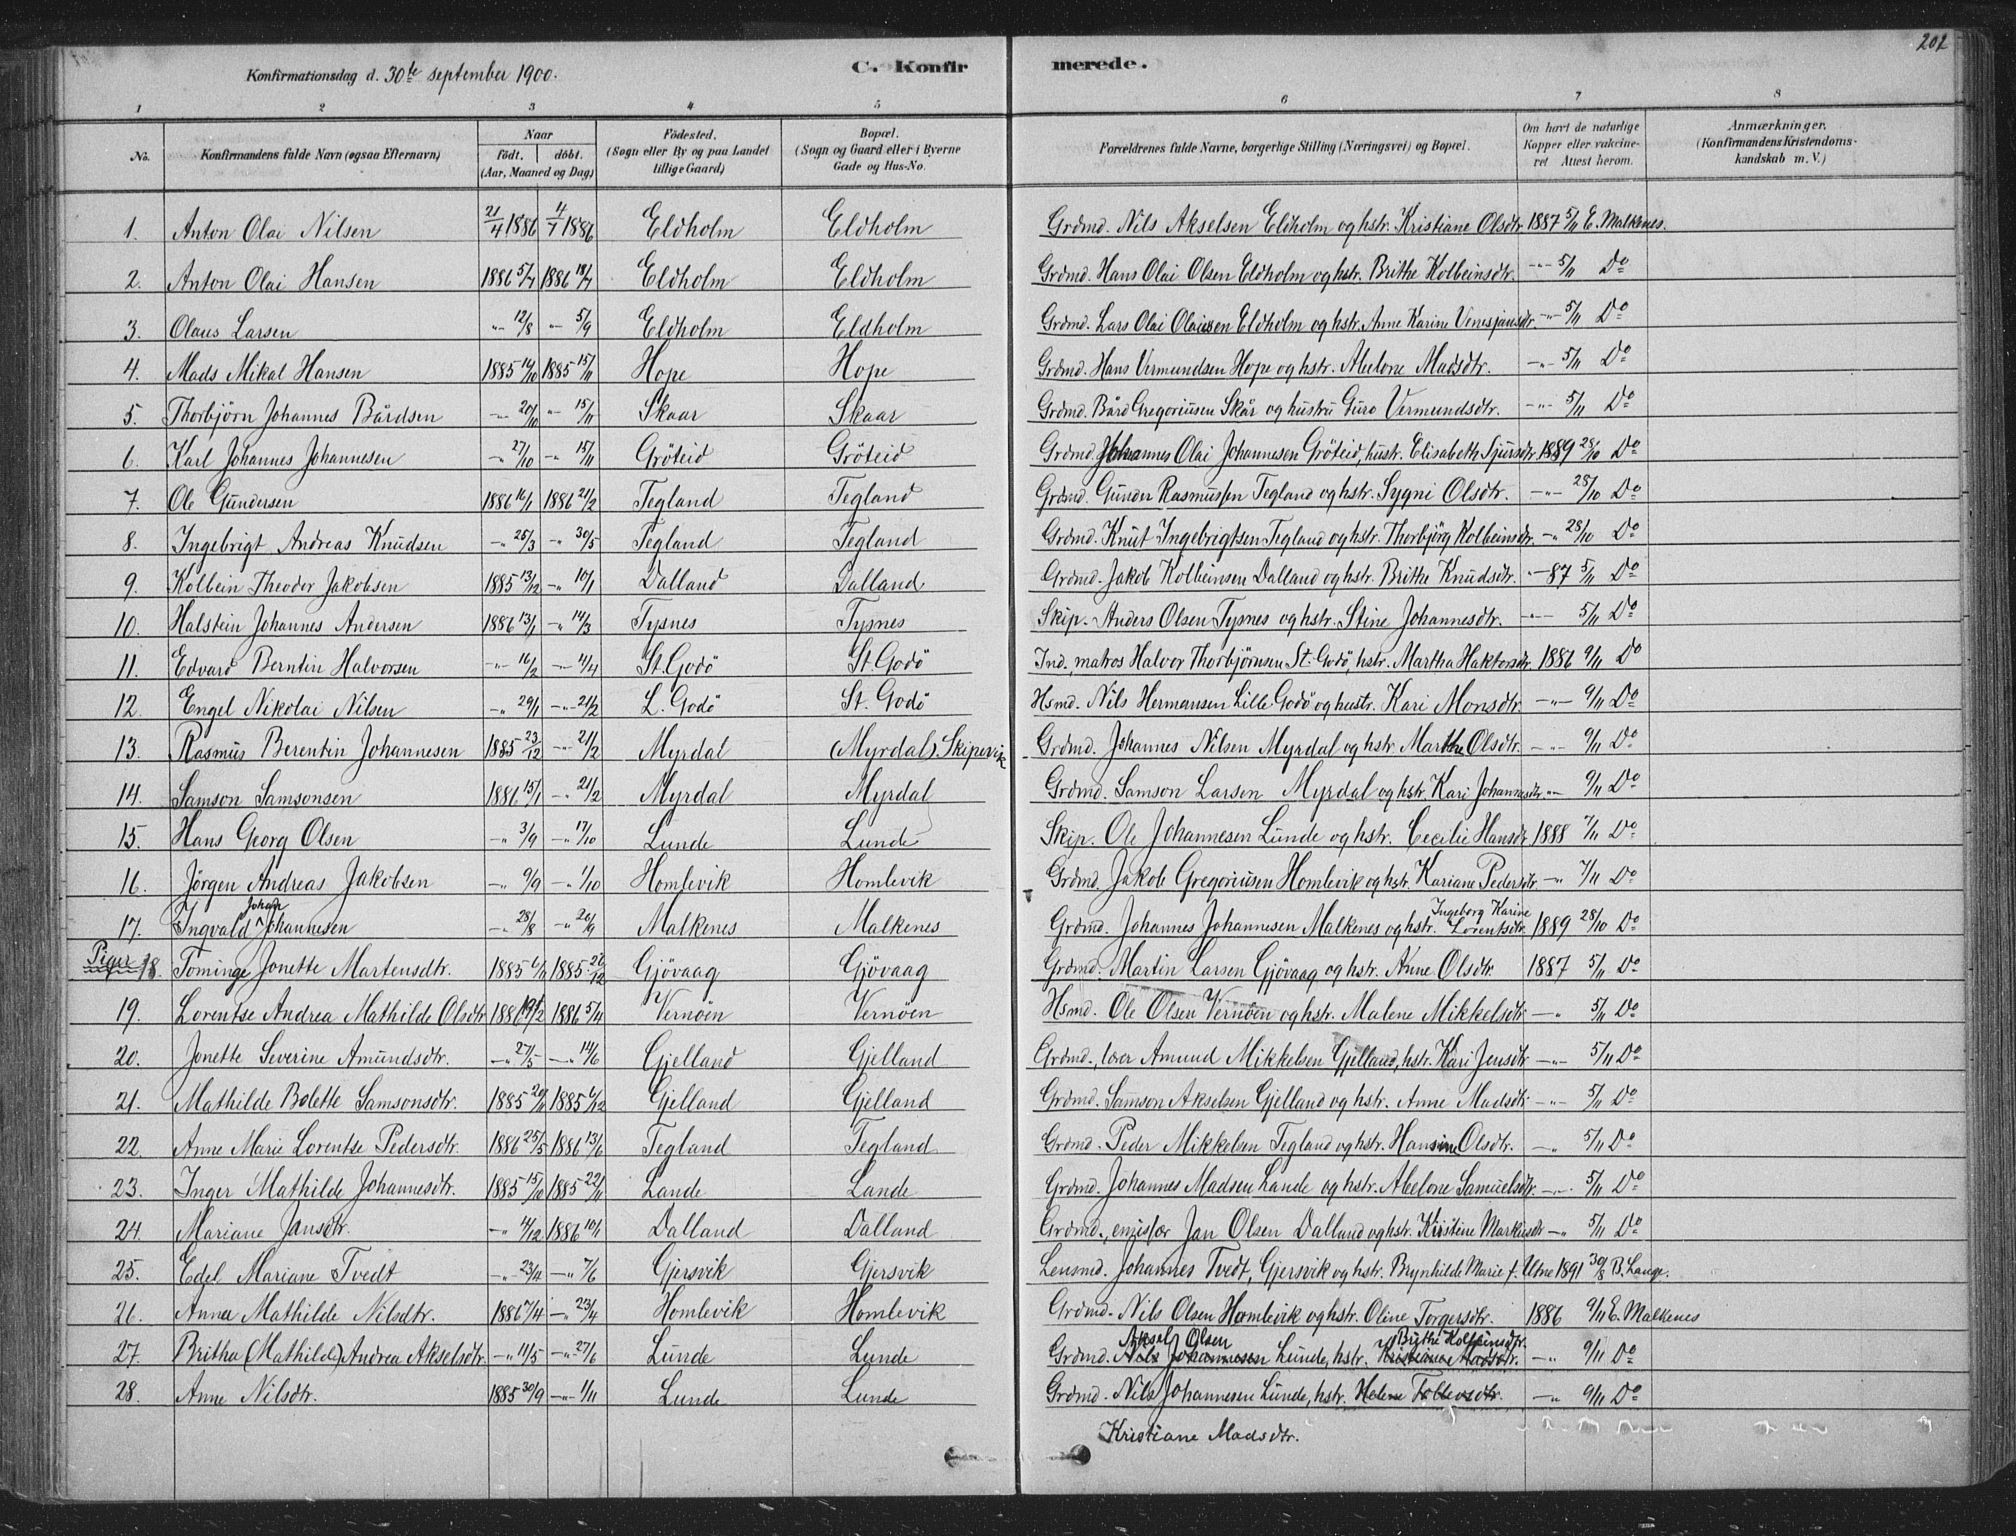 202
Konfirmationsdag d. 30te september 1900. C. Konfirmerede.
1 2 3 4 5 6 7 8
No. Konfirmandens fulde Navn (ogsaa Efternavn) Naar födt. döbt. (Aar, Maaned og Dag) Födested. (Sogn eller By og paa Landet tillige Gaard) Bopæl. (Sogn og Gaard eller i Byerne Gade og Hus-No. Forældrenes fulde Navne, borgerlige Stilling (Næringsvei) og Bopæl. Om havt de naturlige Kopper eller vakcineret Attest herom. Anmærkninger. (Konfirmandens Kristendomskundskab m. V.)
1. Anton Olai Nilsen 21/4 1886 4/7 1886 Eldholm Eldholm Grdmd. Nils Akselsen Eldholm og hstr. Kristiane Olsdtr. 1887 5/11 E. Malkenes.
2. Anton Olai Hansen 1886 5/4 1886 18/4 Eldholm Eldholm Grdmd. Hans Olai Olsen Eldholm og hstr. Brithe Kolbeinsdtr. -"- 5/11 Do
3. Olaus Larsen -"- 12/8 -"- 5/9 Eldholm Eldholm Grdmd. Lars Olai Olaissen Eldholm og hstr. Anne Karine Venesjansdtr. -"- 5/11 Do
4. Mads Mikal Hansen 1885 16/10 1885 15/11 Hope Hope Grdmd. Hans Vermundsen Hope og hstr. Abelone Madsdtr. -"- 5/11 Do
5. Thorbjörn Johannes Bårdsen -"- 20/10 -"- 15/11 Skaar Skaar Grdmd. Bård Gregoriusen Skår og hustru Guro Vermundsdtr. -"- 5/11 Do
6. Karl Johannes Johannesen -"- 27/10 -"- 15/11 Gröteid Gröteid Grdmd. Johannes Olai Johannesen Gröteid, hustr. Elisabeth Sjursdtr. 1889 28/10 Do
7. Ole Gundersen 1886 16/1 1886 21/2 Tegland Tegland Grdmd. Gunder Rasmussen Tegland og hstr. Sygni Olsdtr. -"- 28/10 Do
8. Ingebrigt Andreas Knudsen -"- 25/3 -"- 30/5 Tegland Tegland Grdmd. Knut Ingebrigtsen Tegland og hstr. Thorbjörg Kolbeinsdtr. -"- 28/10 Do
9. Kolbein Theodor Jakobsen 1885 13/12 -"- 10/1 Dalland Dalland Grdmd. Jakob Kolbeinsen Dalland og hstr. Brithe Knudsdtr. "-87 5/11 Do
10. Halstein Johannes Andersen 1886 13/1 -"- 14/3 Tysnes Tysnes Skip. Anders Olsen Tysnes og hstr. Stine Johannesdtr. -"- 5/11 Do
11. Edvard Berntin Halvorsen -"- 16/2 -"- 11/4 St. Godö St. Godö Ind., matros Halvor Thorbjörnsen St. Godö, hstr. Martha Haktorsdtr 1886 9/11 Do
12. Engel Nikolai Nilsen -"- 29/1 -"- 21/2 L. Godö St. Godö Hsmd. Nils Hermansen Lille Godö og hustr. Kari Monsdtr. -"- 9/11 Do
13. Rasmus Berentin Johannesen 1885 23/12 -"- 21/2 Myrdal (Myrdal). Skipevik Grdmd. Johannes Nilsen Myrdal og hstr Marthe Olsdtr. -"- 9/11 Do
14. Samson Samsonsen 1886 15/1 -"- 21/2 Myrdal Myrdal Grdmd. Samson Larsen Myrdal og hstr. Kari Johannesdtr. -"- 9/11 Do
15. Hans Georg Olsen -"- 3/9 -"- 17/10 Lunde Lunde Skip. Ole Johannesen Lunde og hstr. Cecilie Hansdtr 1888 7/11 Do
16. Jörgen Andreas Jakobsen -"- 9/9 -"- 1/10 Homlevik Homlevik Grdmd. Jakob Gregoriusen Homlevik og hstr. Kariane Pedersdtr -"- 7/11 Do
17. Ingvald Johan Johannesen -"- 28/8 -"- 26/9 Malkenes Malkenes Grdmd. Johannes Johannesen Malkenes og hstr. Ingeborg Karine Lorentsdtr. 1889 28/10 Do
Piger 18. Tominge Jonette Martensdtr. 1885 6/11 1885 26/12 Gjövaag Gjövaag Grdmd. Martin Larsen Gjövaag og hstr. Anne Olsdtr 1887 5/11 Do
19. Lorentse Andrea Mathilde Olsdtr 1886 19/2 1886 5/4 Vernöen Vernöen Hsmd. Ole Olsen Vernöen og hstr. Malene Mikkelsdtr -"- 5/11 Do
20. Jonette Severine Amundsdtr. -"- 27/5 -"- 14/6 Gjelland Gjelland Grdmd., lærer Amund Mikkelsen Gjelland, hstr. Kari Jensdtr -"- 5/11 Do
21. Mathilde Bolette Samsonsdtr. 1885 20/11 1885 6/12 Gjelland Gjelland Grdmd. Samson Akselsen Gjelland og hstr. Anne Madsdtr. -"- 5/11 Do
22. Anne Marie Lorentse Pedersdtr. 1886 25/5 1886 13/6 Tegland Tegland Grdmd. Peder Mikkelsen Tegland og hstr. Hansine Olsdtr. -"- 5/11 Do
23. Inger Mathilde Johannesdtr. 1885 15/10 1885 22/11 Lande Lande Grdmd. Johannes Madsen Lande og hstr. Abelone Samuelsdtr. -"- 5/11 Do
24. Mariane Jansdtr. -"- 14/12 1886 10/1 Dalland Dalland Grdmd., emisfær Jan Olsen Dalland og hstr. Kristine Markusdtr -"- 5/11 Do
25. Edel Mariane Tvedt -"- 23/4 -"- 7/6 Gjersvik Gjersvik Lensmd. Johannes Tvedt, Gjersvik og hstr. Brynhilde Marie f. Ulne 1891 30/8 B. Lange.
26. Anna Mathilde Nilsdtr. 1886 7/4 -"- 23/4 Homlevik Homlevik Grdmd. Nils Olsen Homlevik og hstr. Oline Torgersdtr. 1886 9/11 E. Malkenes
27. Britha (Mathilde) Andrea Akselsdtr. -"- 11/5 -"- 27/6 Lunde Lunde Grdmd. Aksel Olsen Nils Johannesen Lunde, hstr. Brithe Kolbeinsdtr. Kristiane Madsdtr. -"- 9/11 Do
28. Anne Nilsdtr. 1885 30/9 -"- 1/11 Lunde Lunde Grdmd. Nils Johannesen Lunde, hstr. Helene Tollevsdtr. -"- 9/11 Do
Kristiane Madsdtr.